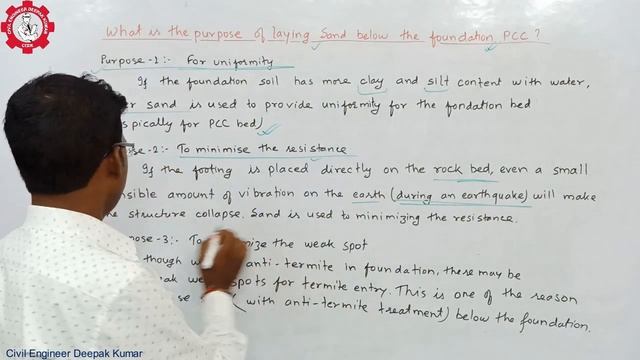 CIVIL ENGINEER DEEPAK KUMAR
CEDK
What is the purpose of laying sand below the foundation PCC ?
Purpose -1:- For uniformity
If the foundation soil has more clay and silt content with water,
sand is used to provide uniformity for the fondation bed
spically for PCC bed)
-2:- To minimise the resistance
If the footing is placed directly on the rock bed, even a small
amount of vibration on the earth (during an earthquake) will make
structure collapse. Sand is used to minimizing the resistance.
-3:- To the weak spot
though anti-termite in foundation, there may be
spots for termite entry. This is one of the reason
(with anti-termite treatment) below the foundation.
Civil Engineer Deepak Kumar